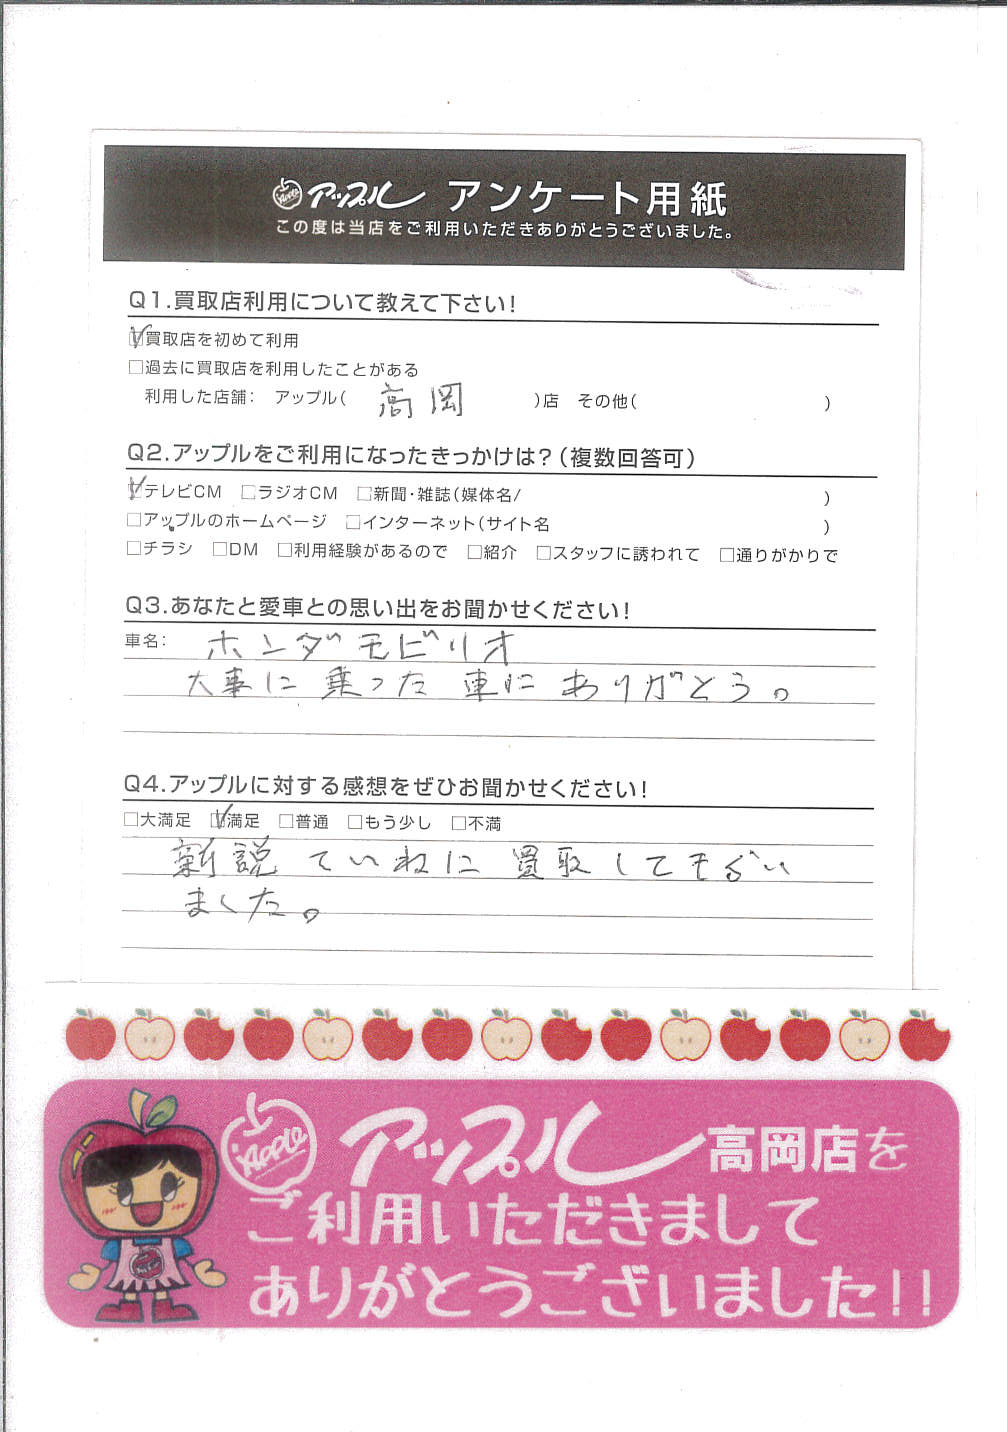 アップル アンケート用紙
この度は当店をご利用いただきありがとうございました。
Q1.買取店利用について教えて下さい!
☑買取店を初めて利用
□過去に買取店を利用したことがある
利用した店舗: アップル( 高岡 )店 その他( )
Q2.アップルをご利用になったきっかけは?(複数回答可)
☑テレビCM □ラジオCM □新聞・雑誌(媒体名/ )
□アップルのホームページ □インターネット(サイト名 )
□チラシ □DM □利用経験があるので □紹介 □スタッフに誘われて □通りがかりで
Q3.あなたと愛車との思い出をお聞かせください!
車名: ホンダモビリオ
大事に乗った車にありがとう。
Q4.アップルに対する感想をぜひお聞かせください!
□大満足 ☑満足 □普通 □もう少し □不満
新説ていねに買取してもらい
ました。
APPLE アップル 高岡店を
ご利用いただきまして
ありがとうございました!!